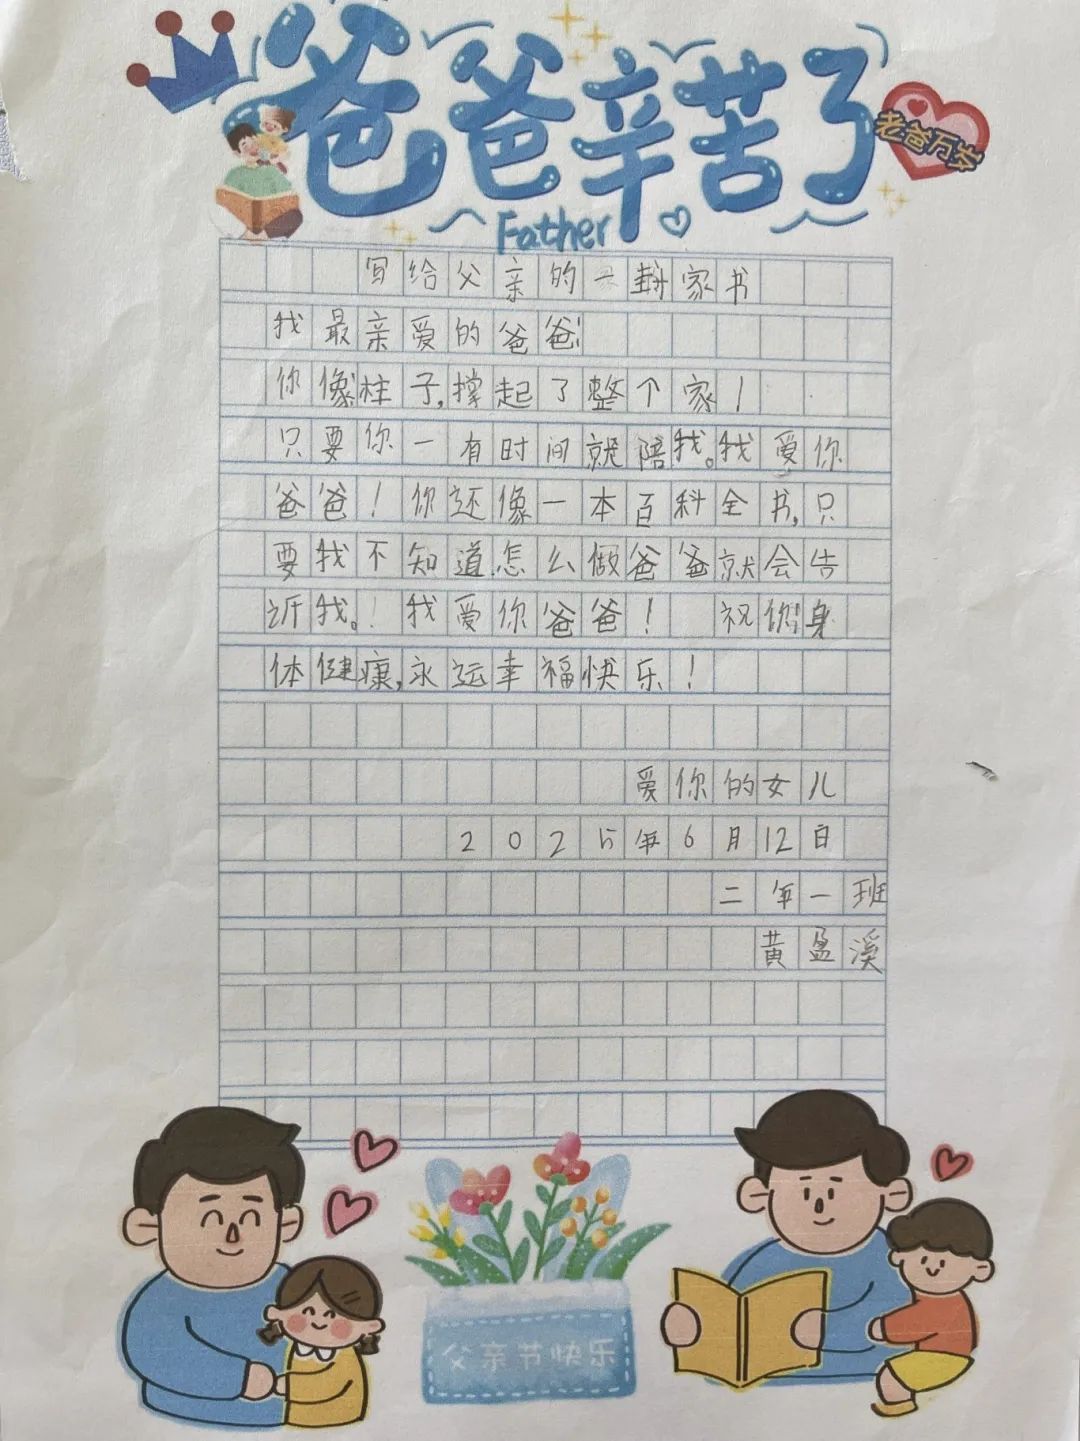 爸爸辛苦了
老爸万岁
Father
写给父亲的一封家书
我最亲爱的爸爸:
你像柱子,撑起了整个家!
只要你一有时间就陪我。我爱你
爸爸!你还像一本百科全书,只
要我不知道怎么做爸爸就会告
诉我。!我爱你爸爸! 祝你身
体健康,永远幸福快乐!
爱你的女儿
2025年6月12日
二年一班
黄盈溪
父亲节快乐